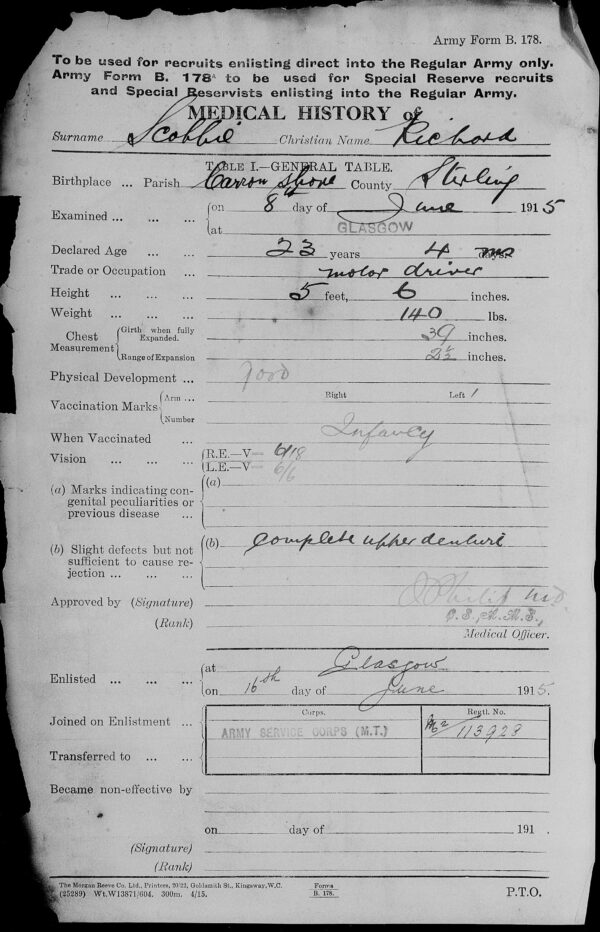 Army Form B. 178.
To be used for recruits enlisting direct into the Regular Army only.
Army Form B. 178A to be used for Special Reserve recruits
and Special Reservists enlisting into the Regular Army.
MEDICAL HISTORY of
Surname Scobbie Christian Name Richard
TABLE I.—GENERAL TABLE.
Birthplace ... Parish Carron Shore County Sterling
Examined ... ... ... { on 8 day of June 1915
at GLASGOW
Declared Age ... ... 23 years 4 days.
Trade or Occupation ... motor driver
Height ... ... ... 5 feet, 6 inches.
Weight ... ... ... 140 lbs.
Chest Measurement { Girth when fully Expanded. 39 inches.
Range of Expansion 2½ inches.
Physical Development ... good
Vaccination Marks { Arm ... Right Left 1
Number
When Vaccinated ... Infancy
Vision ... ... ... { R.E.—V= 6/18
L.E.—V= 6/6
(a) Marks indicating con- { (a)
genital peculiarities or
previous disease ...
(b) Slight defects but not { (b) Complete upper denture
sufficient to cause re-
jection ... ... ...
Approved by (Signature) J Philip M.D.
(Rank)
Medical Officer.
Enlisted ... ... ... { at Glasgow
on 16th day of June 1915.
Corps. Regtl. No.
Joined on Enlistment ... ARMY SERVICE CORPS (M.T.) M2/113928
Transferred to ... ...
Became non-effective by
on day of 191 .
(Signature)
(Rank)
The Morgan Reeve Co. Ltd., Printers, 20/22, Goldsmith St., Kingsway, W.C.
(25289) Wt.W13871/604. 300m. 4/15.
Forms
B. 178.
P.T.O.